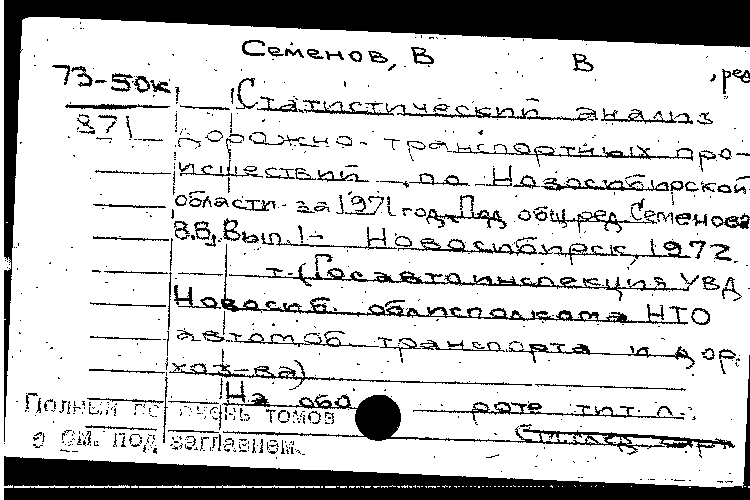 Семенов, В В , ред
73-50к
871
Статистический анализ
дорожно-транспортных про-
исшествий по Новосибирской
области за 1971 год. Под общ. ред. Семенова
В.В. Вып. 1- Новосибирск, 1972.
т. (Госавтоинспекция УВД
Новосиб. облисполкома НТО
автомоб транспорта и дор.
хоз-ва)
На обо роте тит. л.:
Полный перечень томов
см. под заглавием.